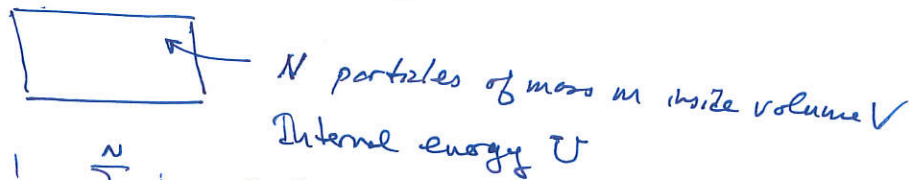 N particles of mass m inside volume V
Internal energy U
N